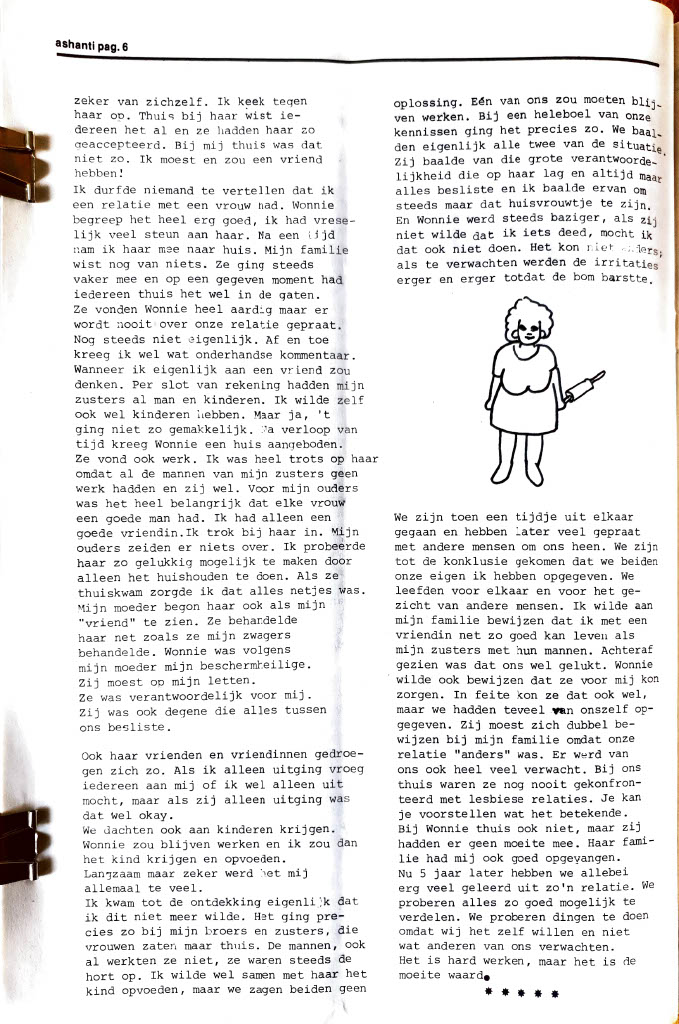 ashanti pag. 6
zeker van zichzelf. Ik keek tegen
haar op. Thuis bij haar wist ie-
dereen het al en ze hadden haar zo
geaccepteerd. Bij mij thuis was dat
niet zo. Ik moest en zou een vriend
hebben!
Ik durfde niemand te vertellen dat ik
een relatie met een vrouw had. Wonnie
begreep het heel erg goed, ik had vrese-
lijk veel steun aan haar. Na een tijd
nam ik haar mee naar huis. Mijn familie
wist nog van niets. Ze ging steeds
vaker mee en op een gegeven moment had
iedereen thuis het wel in de gaten.
Ze vonden Wonnie heel aardig maar er
wordt nooit over onze relatie gepraat.
Nog steeds niet eigenlijk. Af en toe
kreeg ik wel wat onderhandse kommentaar.
Wanneer ik eigenlijk aan een vriend zou
denken. Per slot van rekening hadden mijn
zusters al man en kinderen. Ik wilde zelf
ook wel kinderen hebben. Maar ja, 't
ging niet zo gemakkelijk. Na verloop van
tijd kreeg Wonnie een huis aangeboden.
Ze vond ook werk. Ik was heel trots op haar
omdat al de mannen van mijn zusters geen
werk hadden en zij wel. Voor mijn ouders
was het heel belangrijk dat elke vrouw
een goede man had. Ik had alleen een
goede vriendin.Ik trok bij haar in. Mijn
ouders zeiden er niets over. Ik probeerde
haar zo gelukkig mogelijk te maken door
alleen het huishouden te doen. Als ze
thuiskwam zorgde ik dat alles netjes was.
Mijn moeder begon haar ook als mijn
"vriend" te zien. Ze behandelde
haar net zoals ze mijn zwagers
behandelde. Wonnie was volgens
mijn moeder mijn beschermheilige.
Zij moest op mijn letten.
Ze was verantwoordelijk voor mij.
Zij was ook degene die alles tussen
ons besliste.
Ook haar vrienden en vriendinnen gedroe-
gen zich zo. Als ik alleen uitging vroeg
iedereen aan mij of ik wel alleen uit
mocht, maar als zij alleen uitging was
dat wel okay.
We dachten ook aan kinderen krijgen.
Wonnie zou blijven werken en ik zou dan
het kind krijgen en opvoeden.
Langzaam maar zeker werd het mij
allemaal te veel.
Ik kwam tot de ontdekking eigenlijk dat
ik dit niet meer wilde. Het ging pre-
cies zo bij mijn broers en zusters, die
vrouwen zaten maar thuis. De mannen, ook
al werkten ze niet, ze waren steeds de
hort op. Ik wilde wel samen met haar het
kind opvoeden, maar we zagen beiden geen
oplossing. Eén van ons zou moeten blij-
ven werken. Bij een heleboel van onze
kennissen ging het precies zo. We baal-
den eigenlijk alle twee van de situatie.
Zij baalde van die grote verantwoorde-
lijkheid die op haar lag en altijd maar
alles besliste en ik baalde ervan om
steeds maar dat huisvrouwtje te zijn.
En Wonnie werd steeds baziger, als zij
niet wilde dat ik iets deed, mocht ik
dat ook niet doen. Het kon niet anders,
als te verwachten werden de irritaties
erger en erger totdat de bom barstte.
We zijn toen een tijdje uit elkaar
gegaan en hebben later veel gepraat
met andere mensen om ons heen. We zijn
tot de konklusie gekomen dat we beiden
onze eigen ik hebben opgegeven. We
leefden voor elkaar en voor het ge-
zicht van andere mensen. Ik wilde aan
mijn familie bewijzen dat ik met een
vriendin net zo goed kan leven als
mijn zusters met hun mannen. Achteraf
gezien was dat ons wel gelukt. Wonnie
wilde ook bewijzen dat ze voor mij kon
zorgen. In feite kon ze dat ook wel,
maar we hadden teveel van onszelf op-
gegeven. Zij moest zich dubbel be-
wijzen bij mijn familie omdat onze
relatie "anders" was. Er werd van
ons ook heel veel verwacht. Bij ons
thuis waren ze nog nooit gekonfron-
teerd met lesbiese relaties. Je kan
je voorstellen wat het betekende.
Bij Wonnie thuis ook niet, maar zij
hadden er geen moeite mee. Haar fami-
lie had mij ook goed opgevangen.
Nu 5 jaar later hebben we allebei
erg veel geleerd uit zo'n relatie. We
proberen alles zo goed mogelijk te
verdelen. We proberen dingen te doen
omdat wij het zelf willen en niet
wat anderen van ons verwachten.
Het is hard werken, maar het is de
moeite waard.
* * * * *